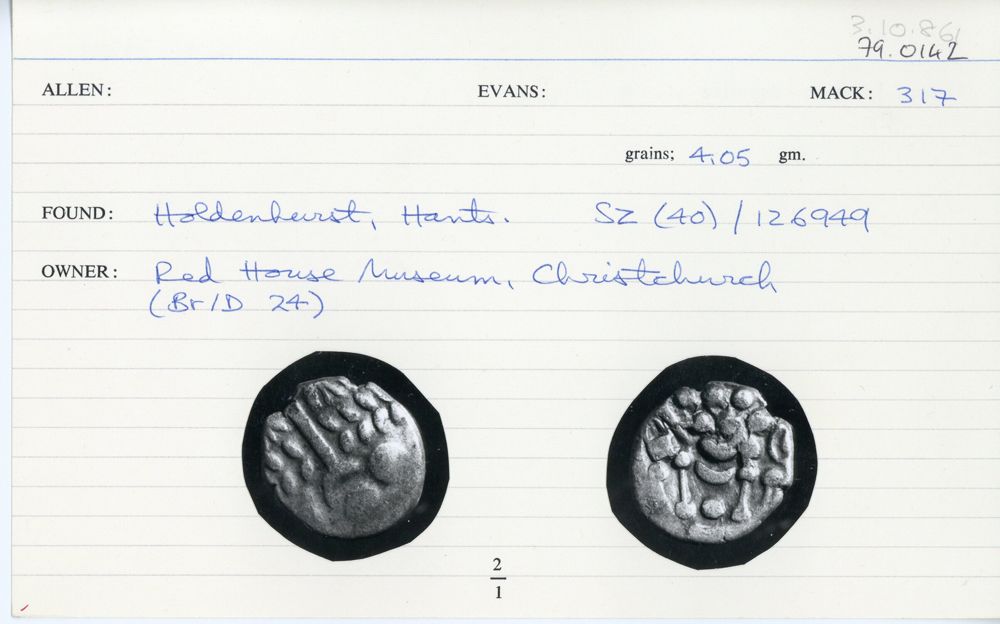 3.10.861
79.0142
ALLEN: EVANS: MACK: 317
grains; 4.05 gm.
FOUND: Holdenhurst, Hants. SZ (40) / 126949
OWNER: Red House Museum, Christchurch
(Br/D 24)
2
1